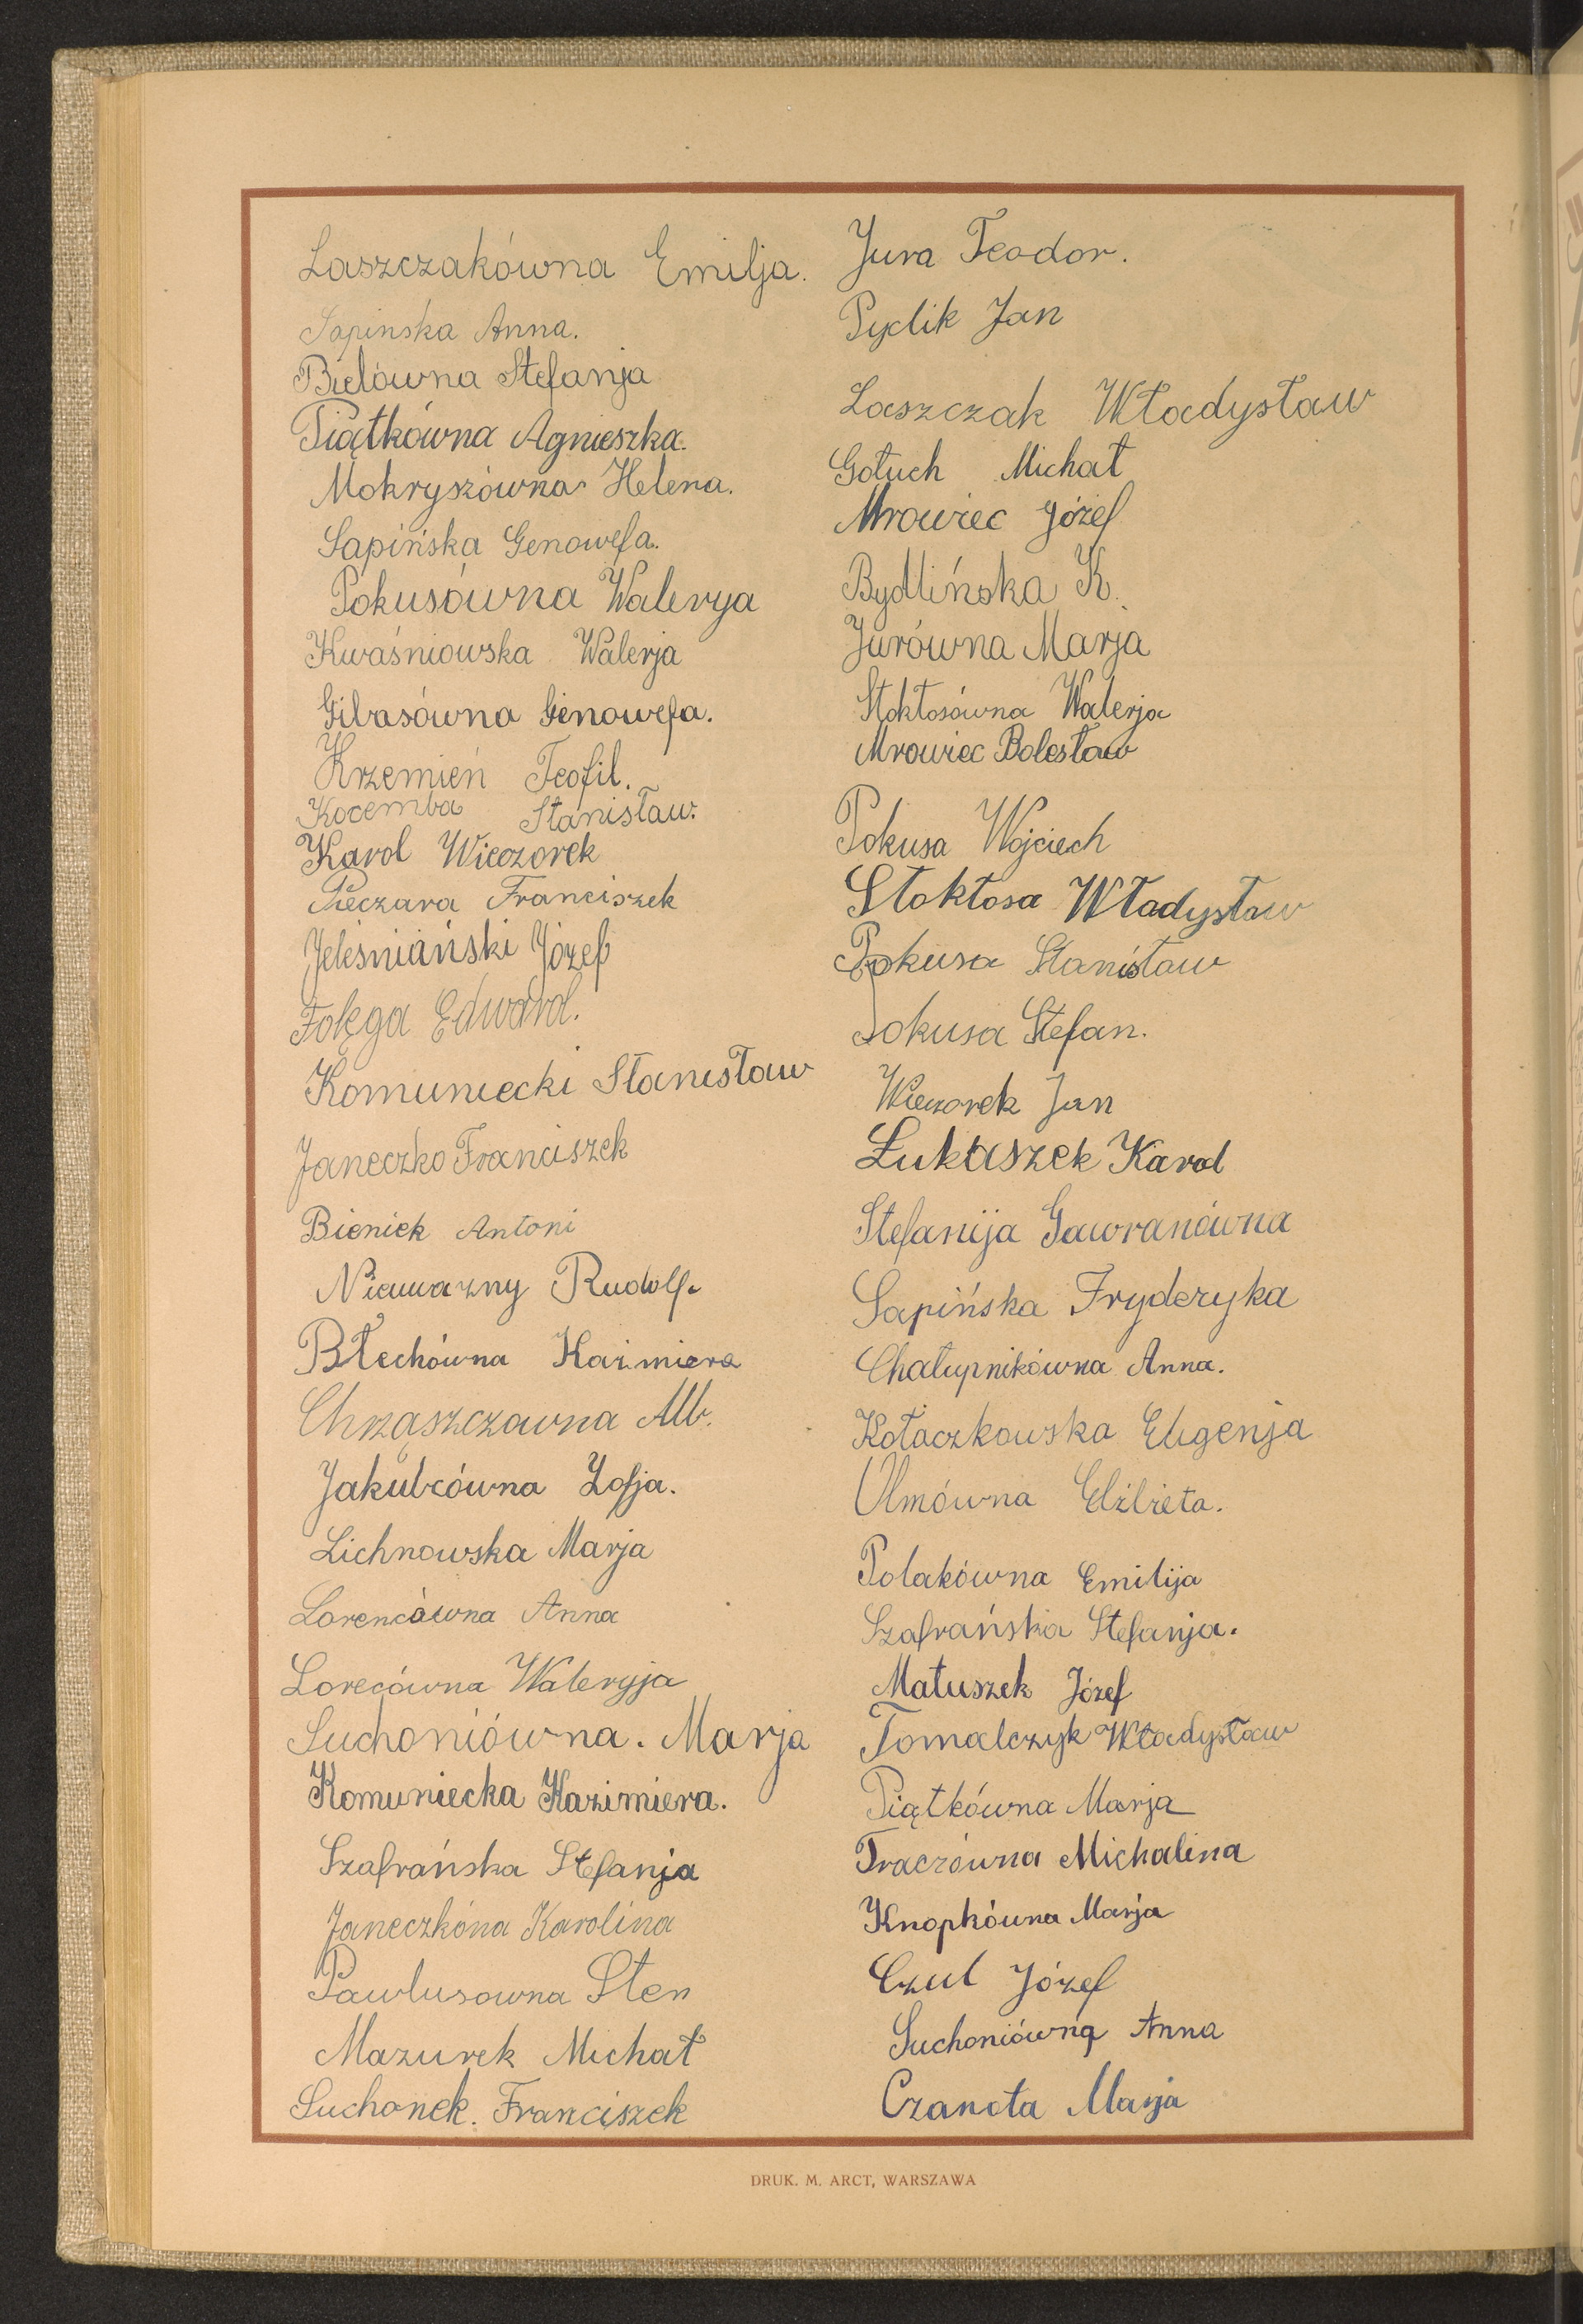 Laszczakówna Emilja.
Sapinska Anna.
Bielówna Stefanja
Piątkówna Agnieszka.
Mokryszówna Helena.
Sapińska Genowefa.
Pokusówna Walerya
Kwaśniowska Walerja
Gibasówna Genowefa.
Krzemień Teofil.
Kocemba Stanisław.
Karol Wieczorek
Pieczara Franciszek
Jeleśniański Józef
Folęga Edward.
Komuniecki Stanisław
Janeczko Franciszek
Bieniek Antoni
Nieuważny Rudolf.
Błechówna Kaźmiera
Chrząszczawna Alb.
Jakubcówna Zofja.
Lichnowska Marja
Lorencówna Anna
Lorecówna Waleryja
Suchoniówna. Marja
Komuniecka Kazimiera.
Szafrańska Stefanja
Janeczkóna Karolina
Pawlusowna Sten
Mazurek Michał
Suchonek. Franciszek
Jura Teodor.
Pyclik Jan
Laszczak Władysław
Gołuch Michał
Mrowiec Józef
Bydlińska K.
Jurówna Marja
Stokłosówna Walerja
Mrowiec Bolesław
Pokusa Wojciech
Stokłosa Władysław
Pokusa Stanisław
Pokusa Stefan.
Wieczorek Jan
Łukaszek Karol
Stefanija Gawranówna
Sapińska Fryderyka
Chałupnikówna Anna.
Kołaczkowska Eugenja
Ulmówna Elżbieta.
Polakówna Emilija
Szafrańska Stefanja.
Matuszek Józef
Tomalczyk Władysław
Piątkówna Marja
Traczówna Michalina
Knopkówna Marja
Czul Józef
Suchoniówna Anna
Czanota Marja
DRUK. M. ARCT, WARSZAWA